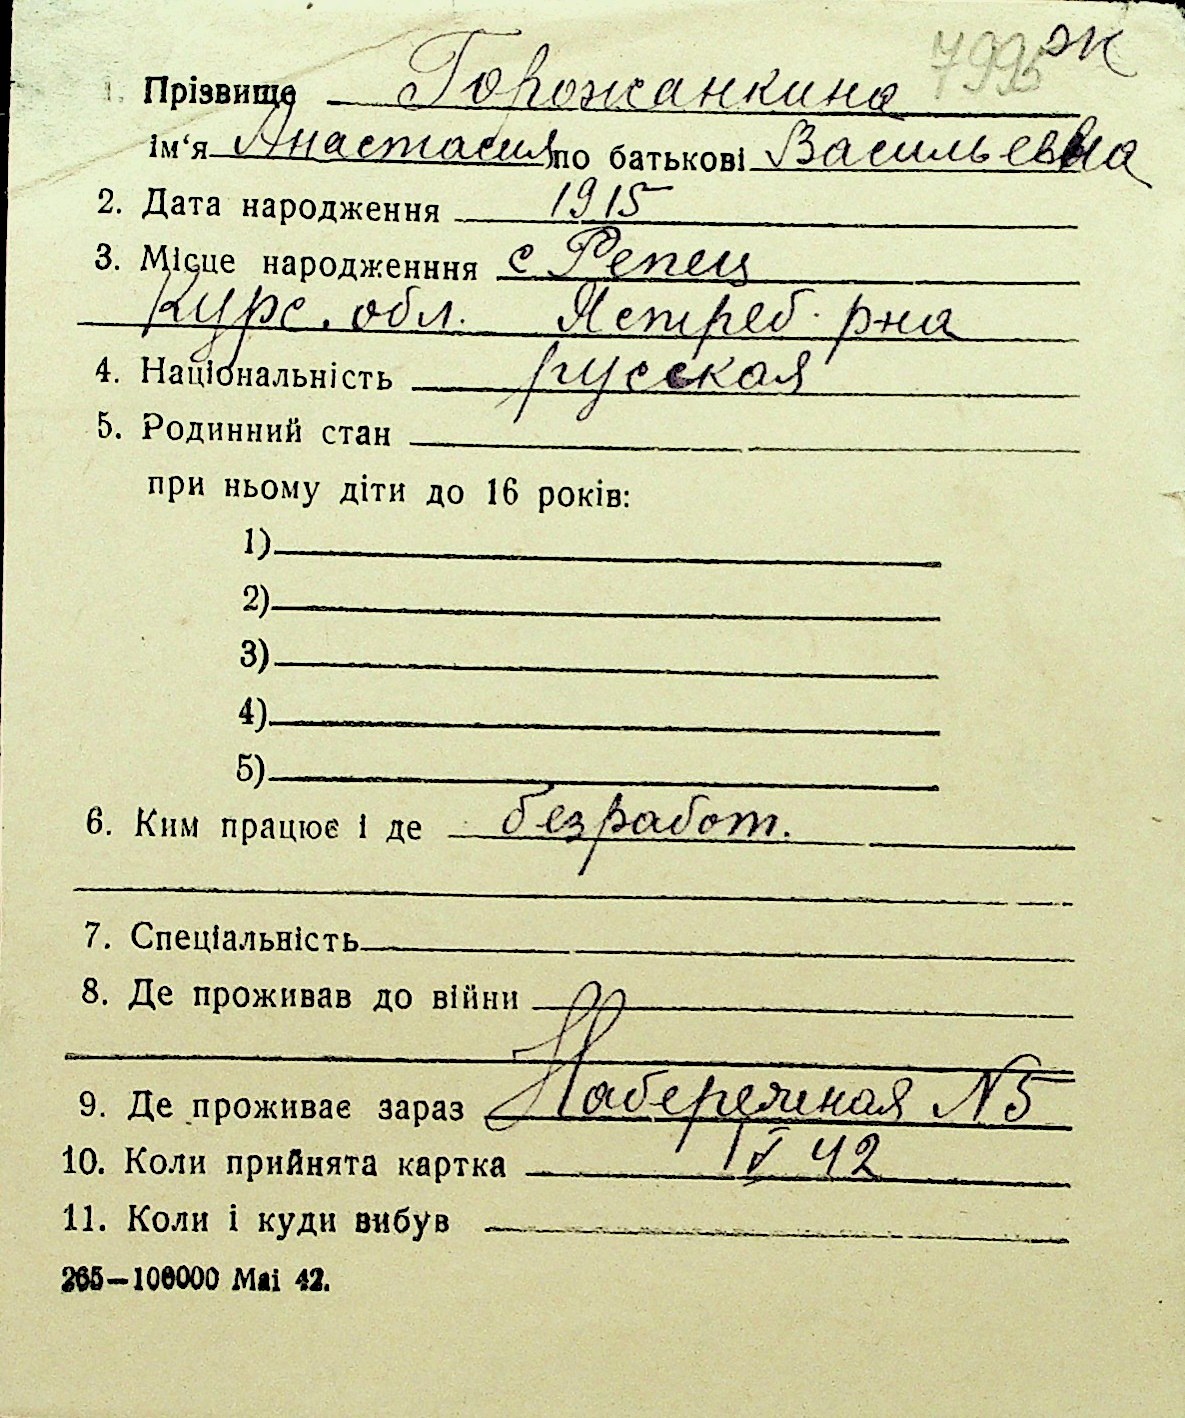 7995 ж
1. Прізвище Горожанкина
Ім‘я Анастасия по батькові Васильевна
2. Дата народження 1915
3. Місце народженння с Репец
Курс. обл. Ястреб. р-на
4. Національність русская
5. Родинний стан
при ньому діти до 16 років:
1)
2)
3)
4)
5)
6. Ким працює і де безработ.
7. Спеціальність
8. Де проживав до війни
9. Де проживає зараз Набережная №5
10. Коли прийнята картка 42
11. Коли і куди вибув
265—100000 Маі 42.